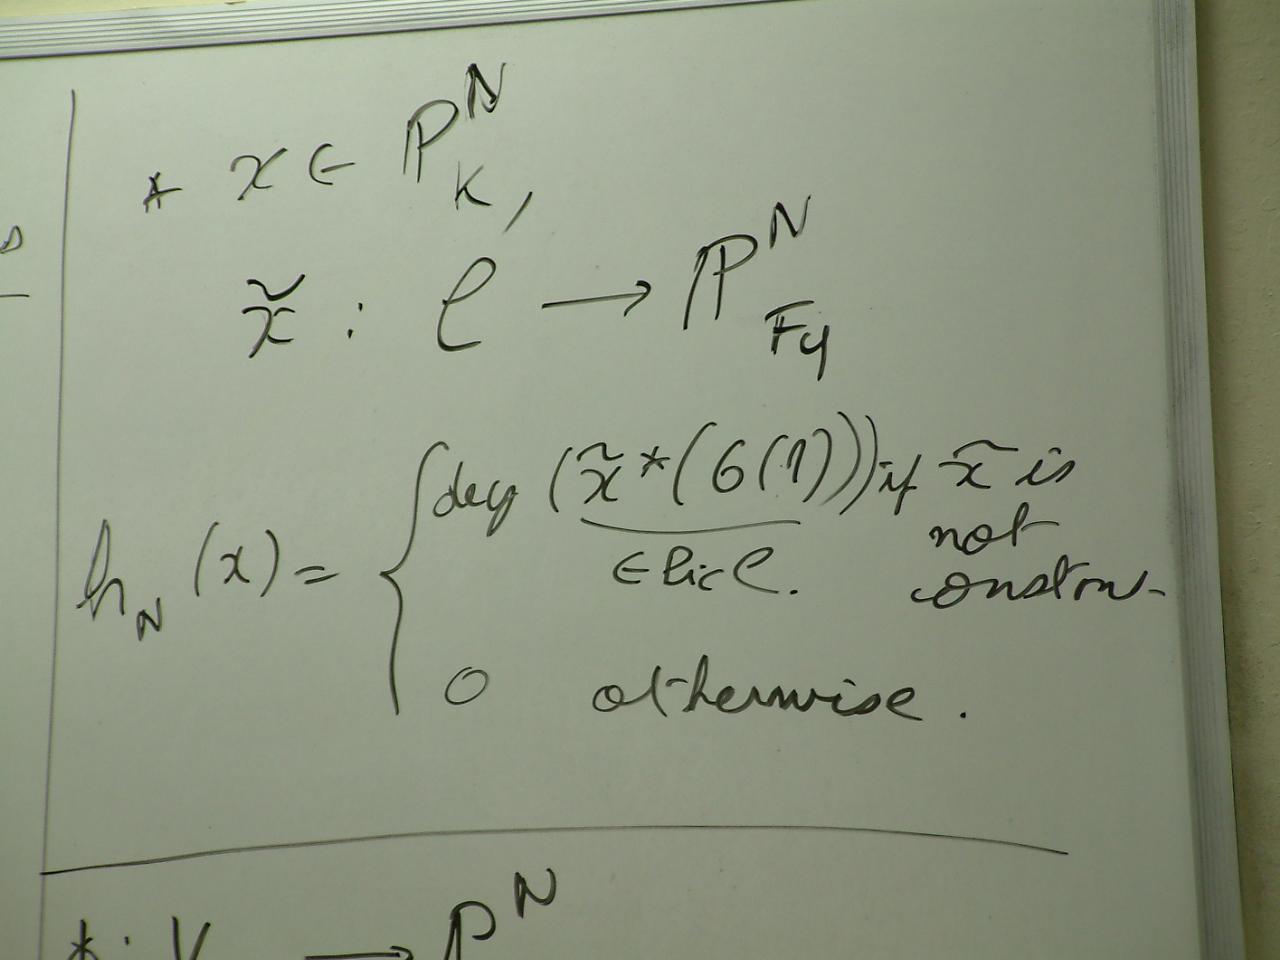 * x ∈ ℙ^N_K,
x̃ : ℓ → ℙ^N_{Fq}
h_N (x) = { deg (x̃*(O(1))) if x̃ is
not
∈ Pic ℓ. constan-
0 otherwise.
: V → P^N